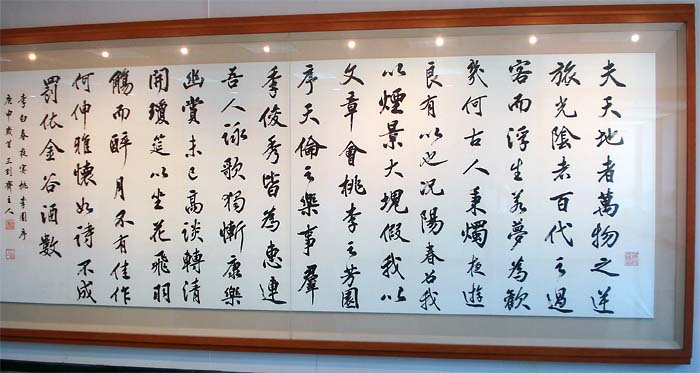 夫天地者萬物之逆
旅光陰者百代之過
客而浮生若夢為歡
幾何古人秉燭夜遊
良有以也況陽春召我
以煙景大塊假我以
文章會桃李之芳園
序天倫之樂事羣
季俊秀皆為惠連
吾人詠歌獨慚康樂
幽賞未已高談轉清
開瓊筵以坐花飛羽
觴而醉月不有佳作
何伸雅懷如詩不成
罰依金谷酒數
李白春夜宴桃李園序
庚申歲三到齋主人